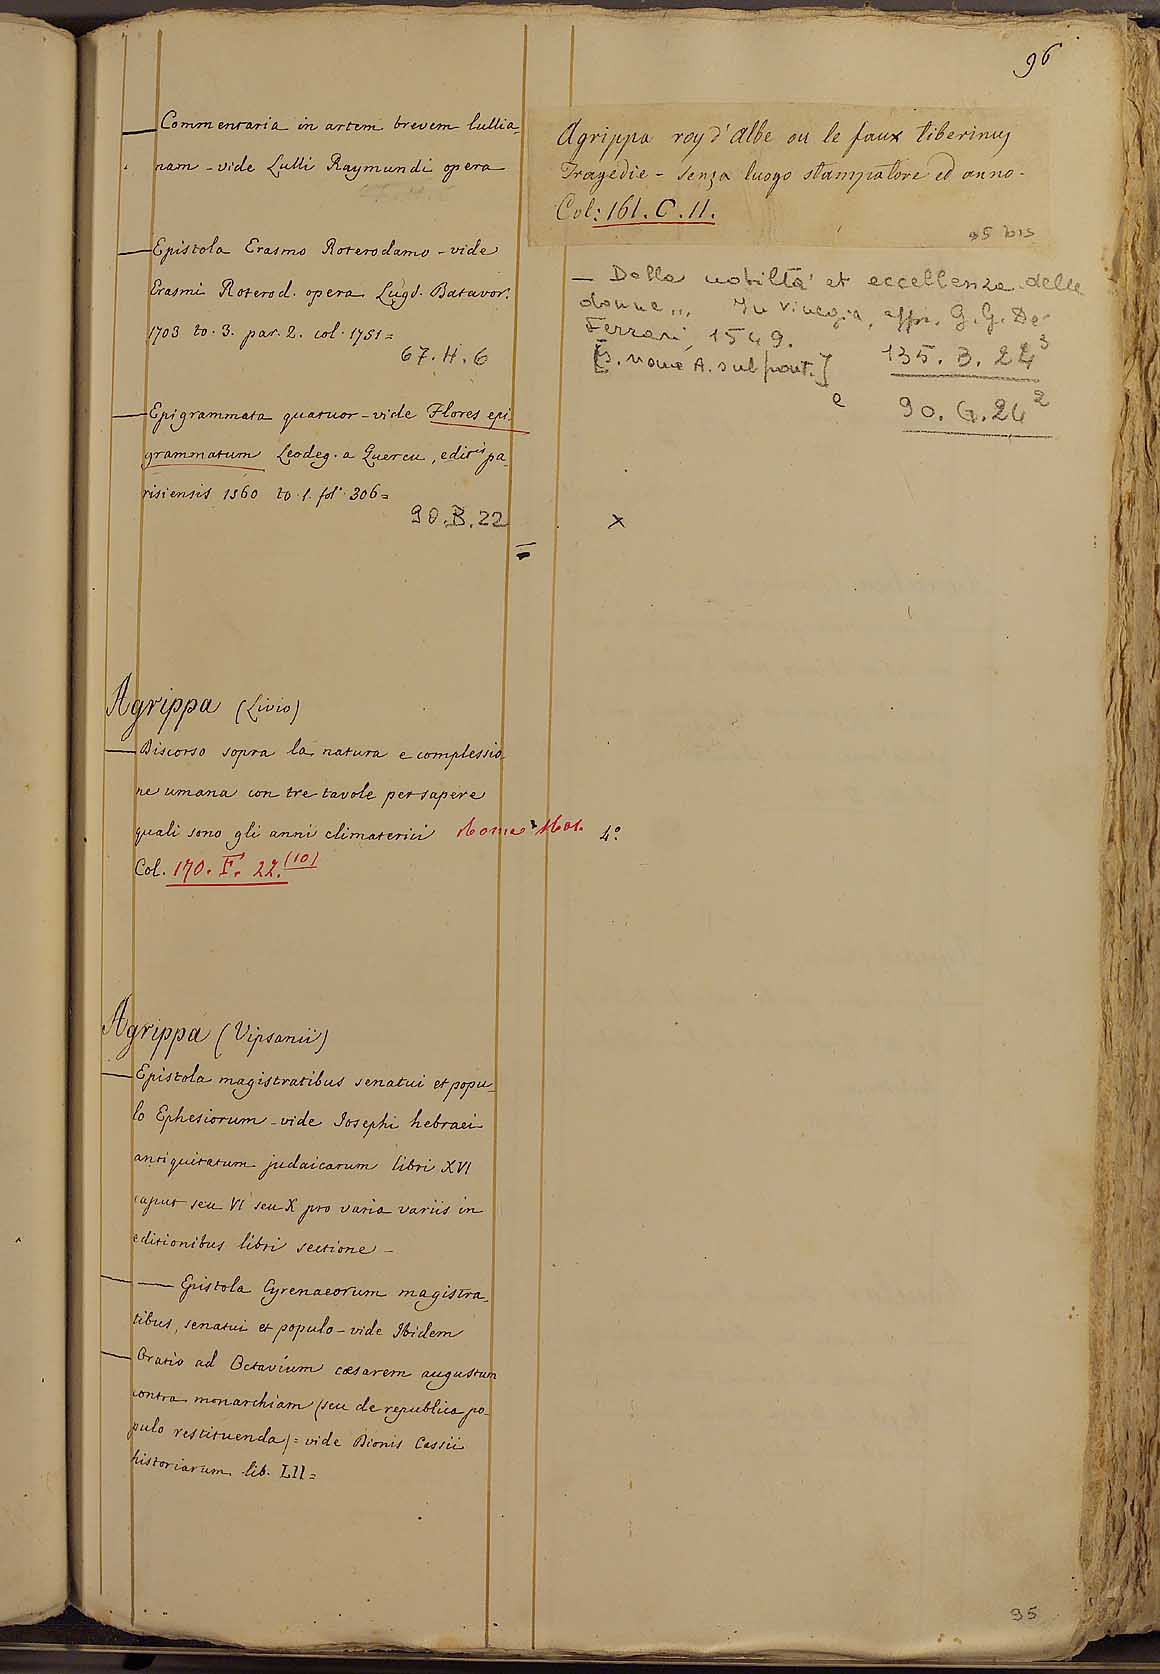 96
— Commentaria in artem brevem lullia-
nam - vide Lulli Raymundi opera
— Epistola Erasmo Roterodamo - vide
Erasmi Roterod. opera Lugd. Batavor.
1703 to. 3. par. 2. col. 1751 =
67. H. 6
— Epigrammata quatuor - vide Flores epi
grammatum Leodeg. a Quercu, editis pa-
risiensis 1560 to. 1. fol. 306 =
90. B. 22
=
Agrippa (Livio)
— Discorso sopra la natura e complessio-
ne umana con tre tavole per sapere
quali sono gli anni climaterici Roma 1601. 4°
Col. 170. F. 22. (10)
Agrippa (Vipsanii)
— Epistola magistratibus senatui et popu-
lo Ephesiorum - vide Josephi hebraei
antiquitatum judaicarum libri XVI
caput seu VI seu X pro varia variis in
editionibus libri sectione -
— — Epistola Cyrenaeorum magistra-
tibus, senatui et populo - vide Ibidem
— Oratio ad Octavium caesarem augustum
contra monarchiam (seu de republica po-
pulo restituenda) = vide Dionis Cassii
historiarum lib. LII =
Agrippa roy d'Albe ou le faux Tiberinus
Tragedie - senza luogo stampatore ed anno -
Col: 161. C. 11.
95 bis
— Della nobiltà et eccellenza delle
donne... In Vinegia, appr. G. G. De
Ferrari, 1549.
[s. nome A. sul front.] 135. B. 24 3
e 90. G. 24 2
x
95